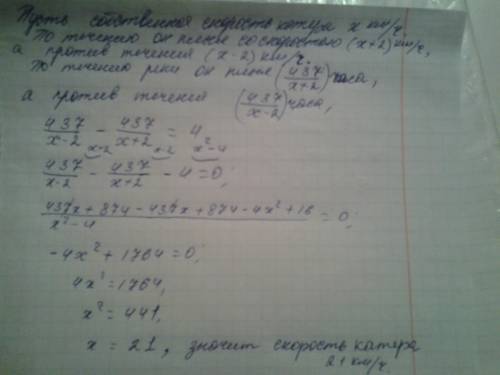 Пусть собственная скорость катера x км/ч,
По течению он плыл со скоростью (x+2) км/ч,
а против течения (x-2) км/ч.
По течению реки он плыл (437/(x+2)) часа,
а против течения (437/(x-2)) часа,
437/(x-2) - 437/(x+2) = 4
x+2 x-2 x²-4
437/(x-2) - 437/(x+2) - 4 = 0;
(437x + 874 - 437x + 874 - 4x² + 16)/(x²-4) = 0;
-4x² + 1764 = 0;
4x² = 1764,
x² = 441,
x = 21, значит скорость катера
21 км/ч.